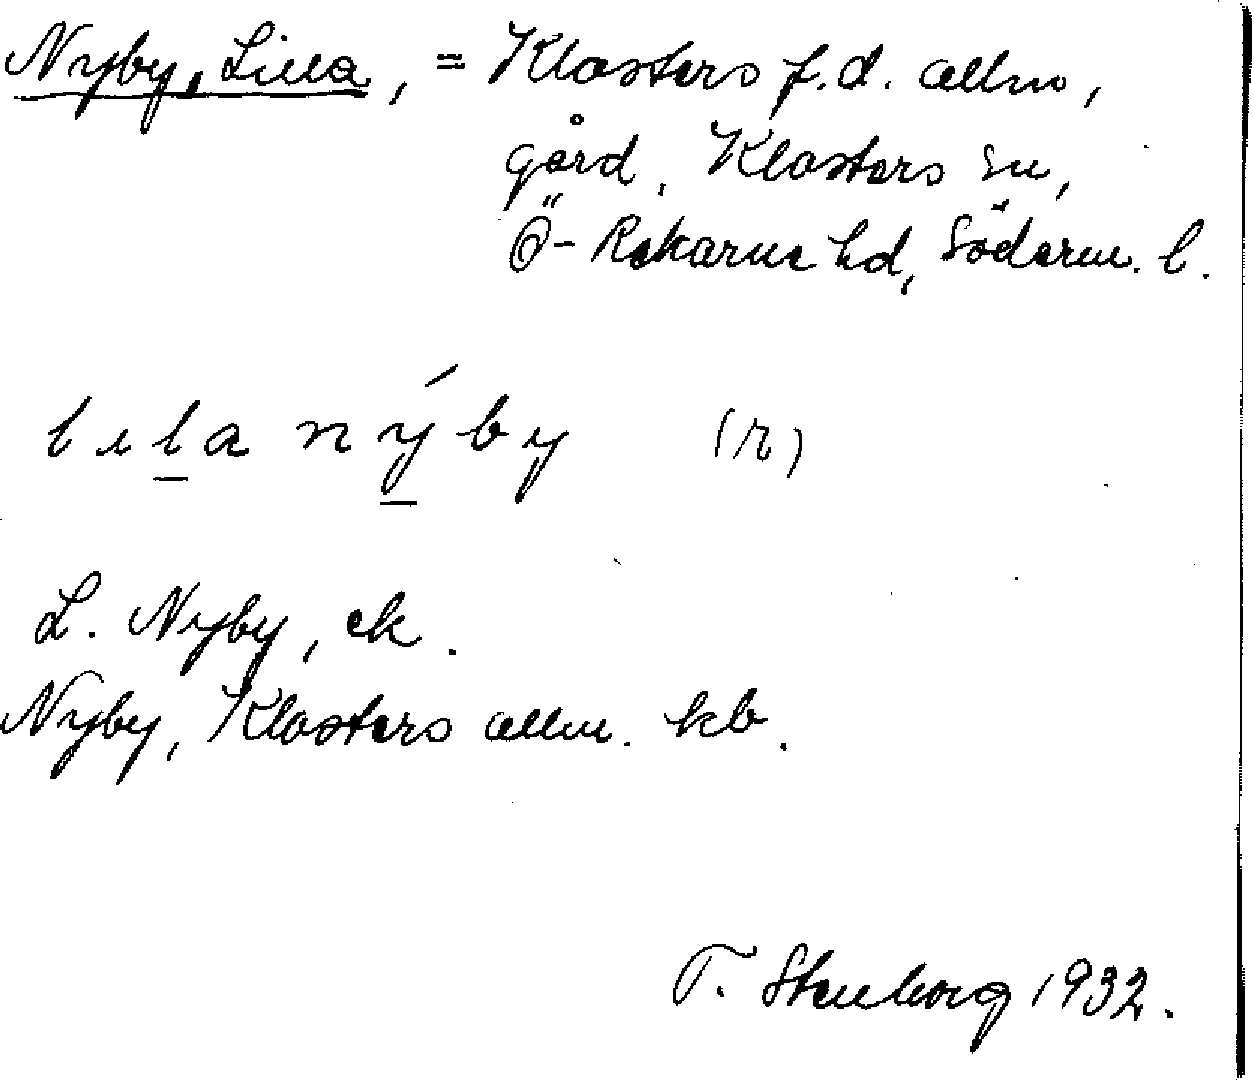 Nyby, Lilla, = Klosters f.d. allm,
gård, Klosters sn,
Ö-Rekarne hd, Söderm. l.
lıla nýby (r)
L. Nyby, ek.
Nyby, Klosters allm. kb.
T. Stenborg 1932.